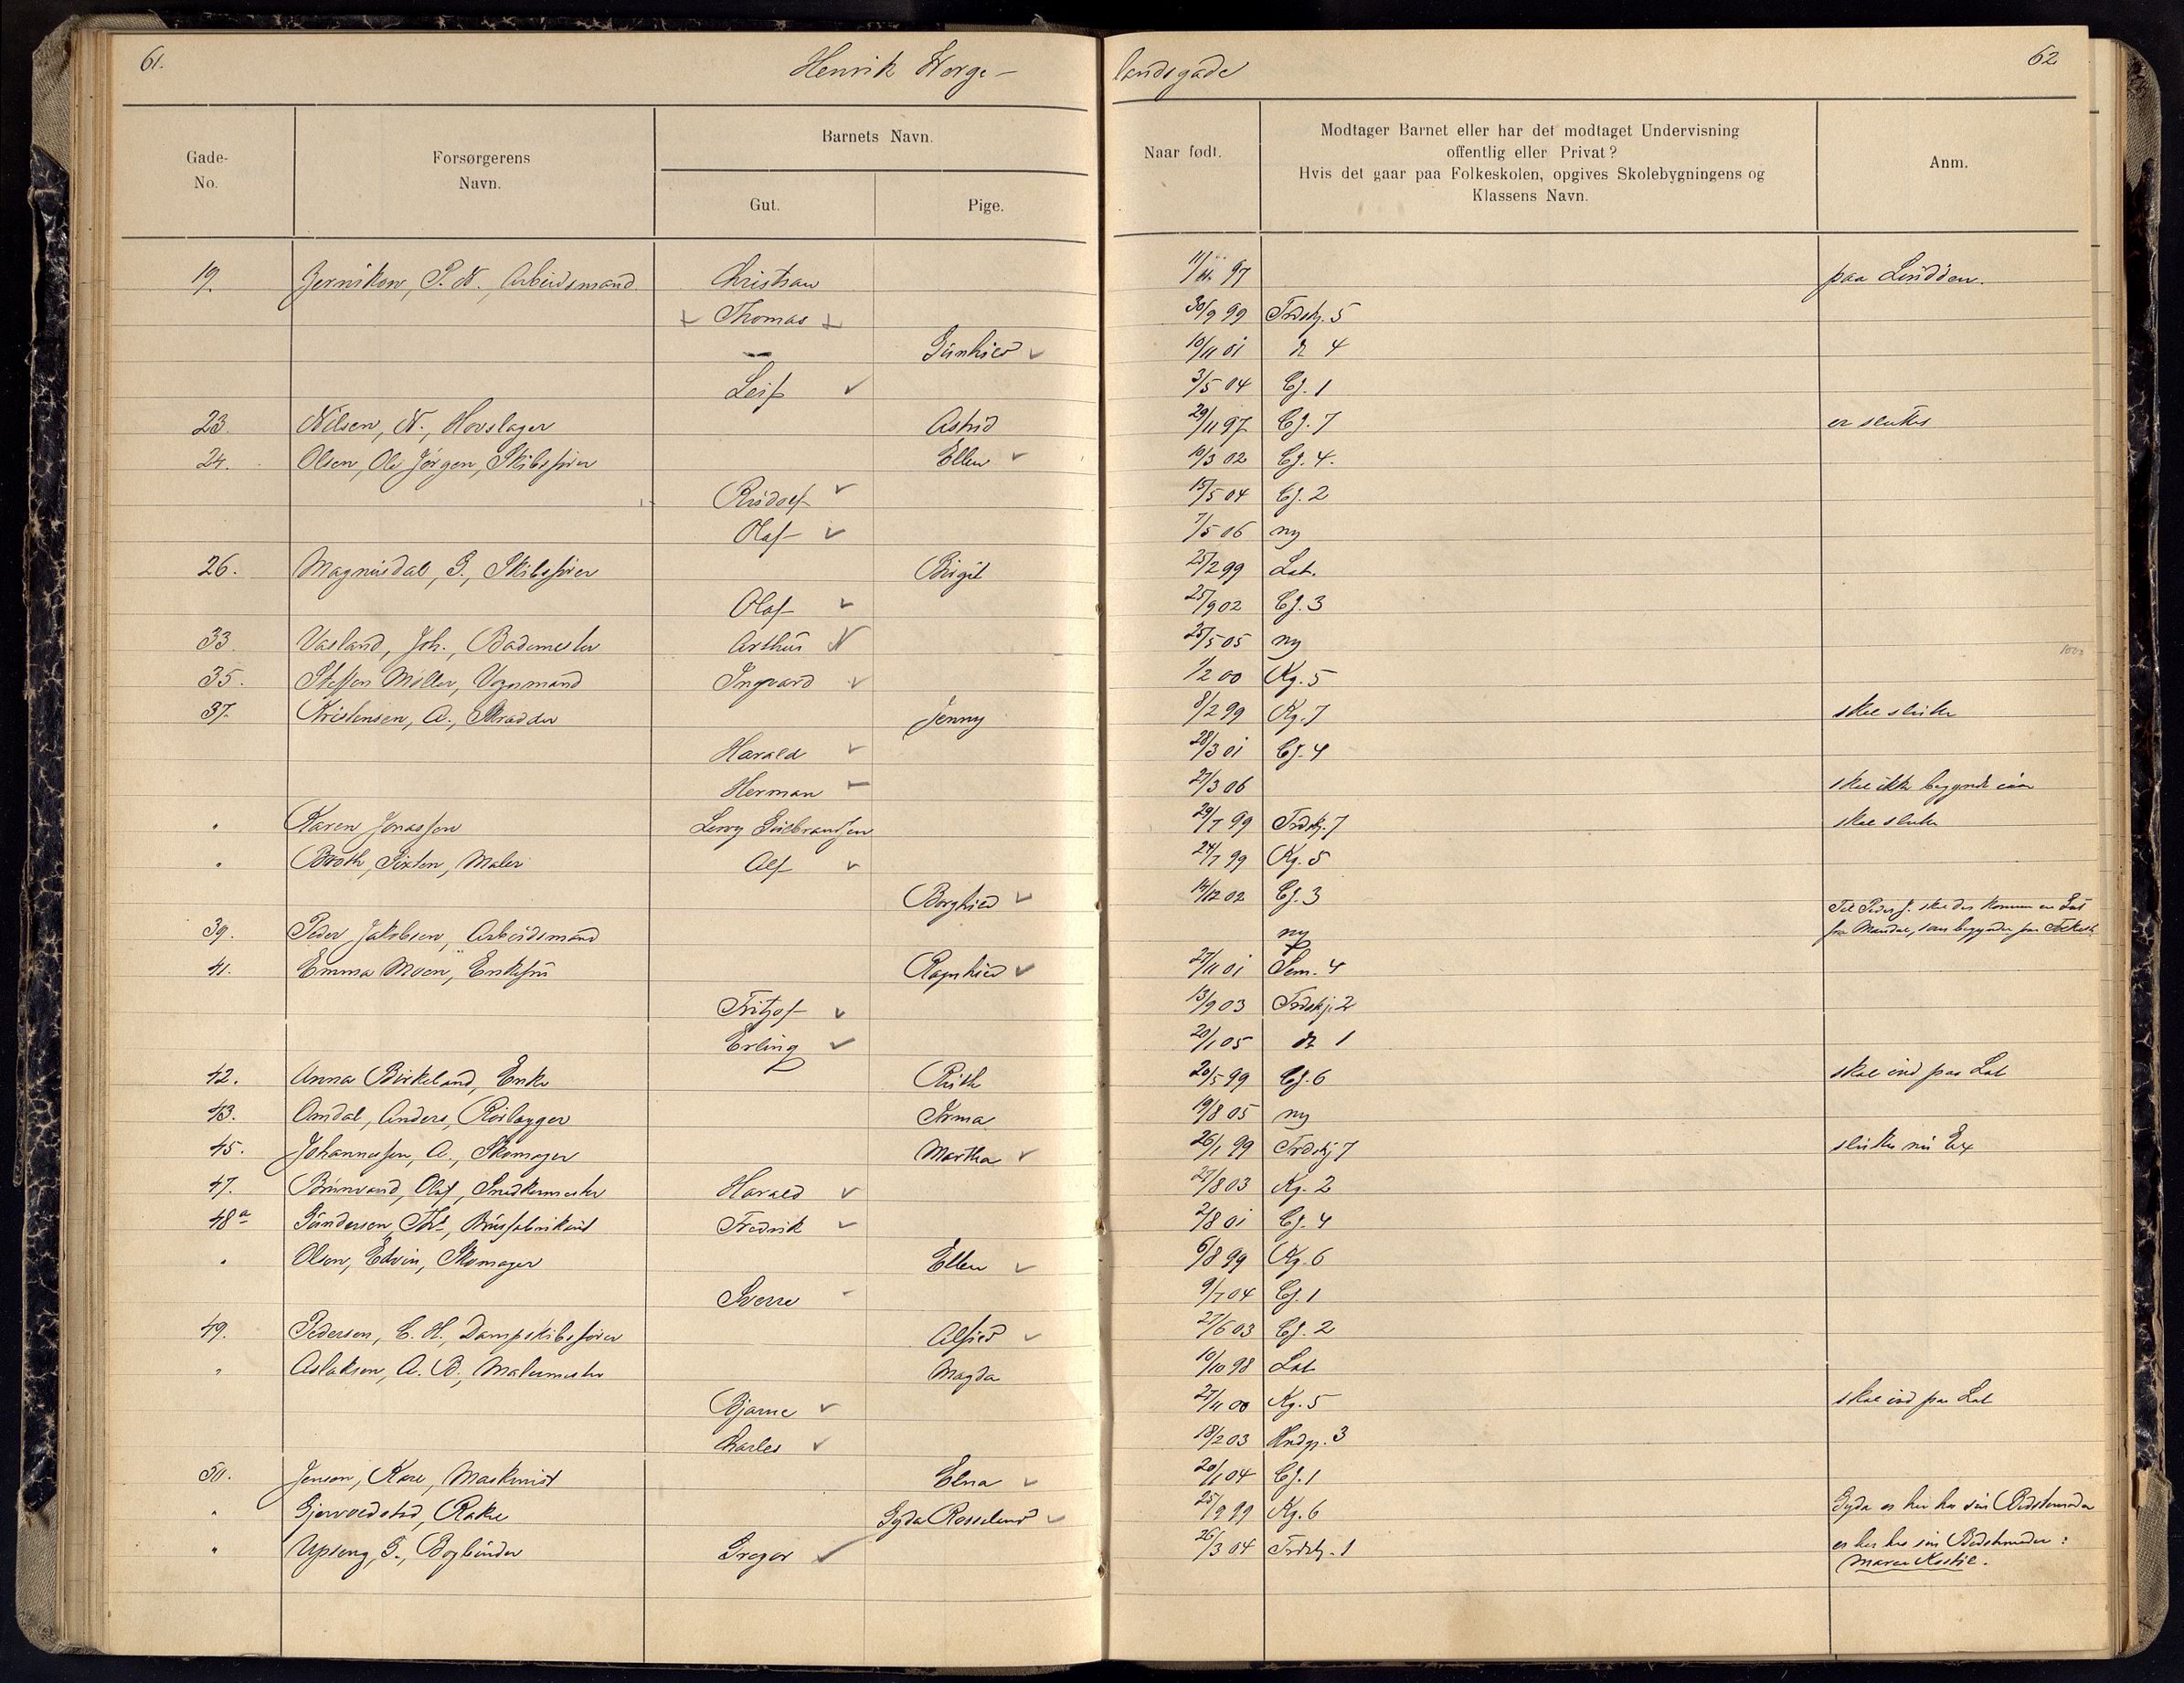 61. Henrik Werge- landsgade 62
Gade-No. Forsørgerens Navn. Barnets Navn. Naar født. Modtager Barnet eller har det modtaget Undervisning offentlig eller Privat? Hvis det gaar paa Folkeskolen, opgives Skolebygningens og Klassens Navn. Anm.
Gut. Pige.
19. P. N., Arbeidsmand Christian 97
Thomas 30/9 99 Trdskj. 5
Gunhild 10/11 01 do 4
Leif 3/5 04 Cf. 1
23. Nilsen, N., Hovslager Astrid 29/11 97 Cf. 7
24. Olsen, Ole Jørgen, Skibsfører Ellen 10/3 02 Cf. 4.
Rudolf 15/5 04 Cf. 2
Olaf 7/5 06 ny
26. Magnusdal, G., Skibsfører Birgit 25/2 99 Lat.
Olaf 25/9 02 Cf. 3
33. Vasland, Joh., Bademester Arthur 25/5 05 ny
35. Steffen Møller, Vognmand Ingvard 1/2 00 Kg. 5
37. Kristensen, A., Skrædder Jenny 8/2 99 Kg. 7 skal slutte
Harald 28/3 01 Cf. 4
Herman 27/3 06 skal ikke begynde iaar
" Karen Jonassen Gulbrandsen 29/7 99 Trdskj. 7 skal slutte
" Broth, Sixten, Maler Alf 24/7 99 Kg. 5
Borghild 14/12 02 Cf. 3
39. Peder Jakobsen, Arbeidsmand ny Til Peder J. skal der komme en Gut
fra Mandal, som begynder paa Folkesk.
41. Emma Moen, Enkefru Ragnhild 27/11 01 Sem. 4
Fritjof 13/9 03 Trdskj. 2
Erling 20/1 05 do 1
42. Anna Birkeland, Enke Ruth 20/5 99 Cf. 6 skal ind paa Lat
43. Omdal, Anders, Rørlægger Irma 19/8 05 ny
45. Johannessen, A., Skomager Martha 26/1 99 Trdskj. 7 slutter nu Ex
47. Brunvand, Olaf, Snedkermester Harald 27/8 03 Kg. 2
48a Gundersen, Ths., Brusfabrikant Fredrik 2/8 01 Cf. 4
" Olsen, Edvin, Skomager Ellen 6/8 99 Kg. 6
Sverre 9/7 04 Cf. 1
49. Pedersen, C. H., Dampskibsfører Alfild 27/6 03 Cf. 2
" Aslaksen, A. B., Malermester Magda 10/10 98 Lat
Bjarne 27/11 00 Kg. 5 skal ind paa Lat
Charles 18/2 03 Hndg. 3
50. Jensen, Kare, Maskinist Elna 20/1 04 Cf. 1
" Gjervoldstad, Rakel Gyda Rosseland 25/9 99 Kg. 6 Gyda er her hos sin Bedstemoder
" Upseng, G., Bogbinder Gregor 26/3 04 Trdskj. 1 er her hos sin Bedstemoder:
Maren